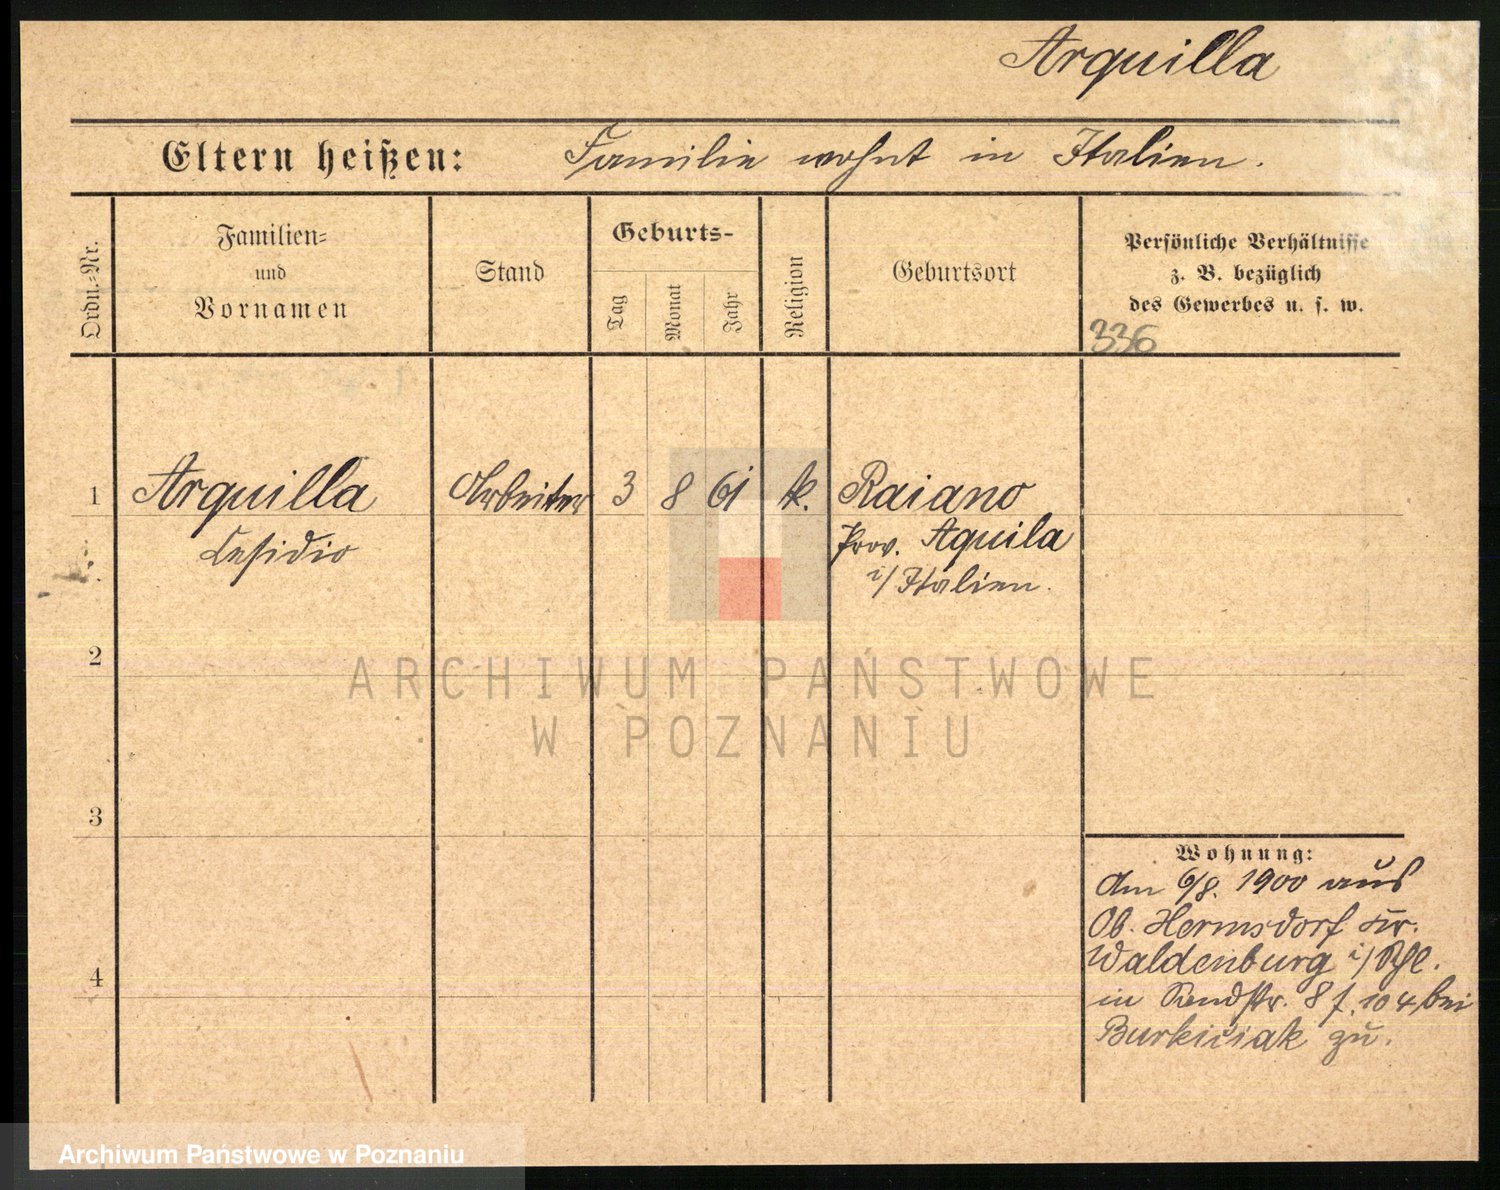 Arquilla
Eltern heißen: Familie wohnt in Italien.
Ordn.-Nr.
Familien-
und
Vornamen
Stand
Geburts-
Tag
Monat
Jahr
Religion
Geburtsort
Persönliche Verhältnisse
z. B. bezüglich
des Gewerbes u. s. w.
336
1 Arquilla Arbeiter 3 8 61 k. Raiano
Cesidio
Prov. Aquila
i/ Italien.
2
3
4
Wohnung:
Am 6/8. 1900 aus
Ob. Hermsdorf Kr.
Waldenburg i/ Schl.
in Sandstr. 8 f. 104 bei
zu.
ARCHIWUM PAŃSTWOWE
W POZNANIU
Archiwum Państwowe w Poznaniu